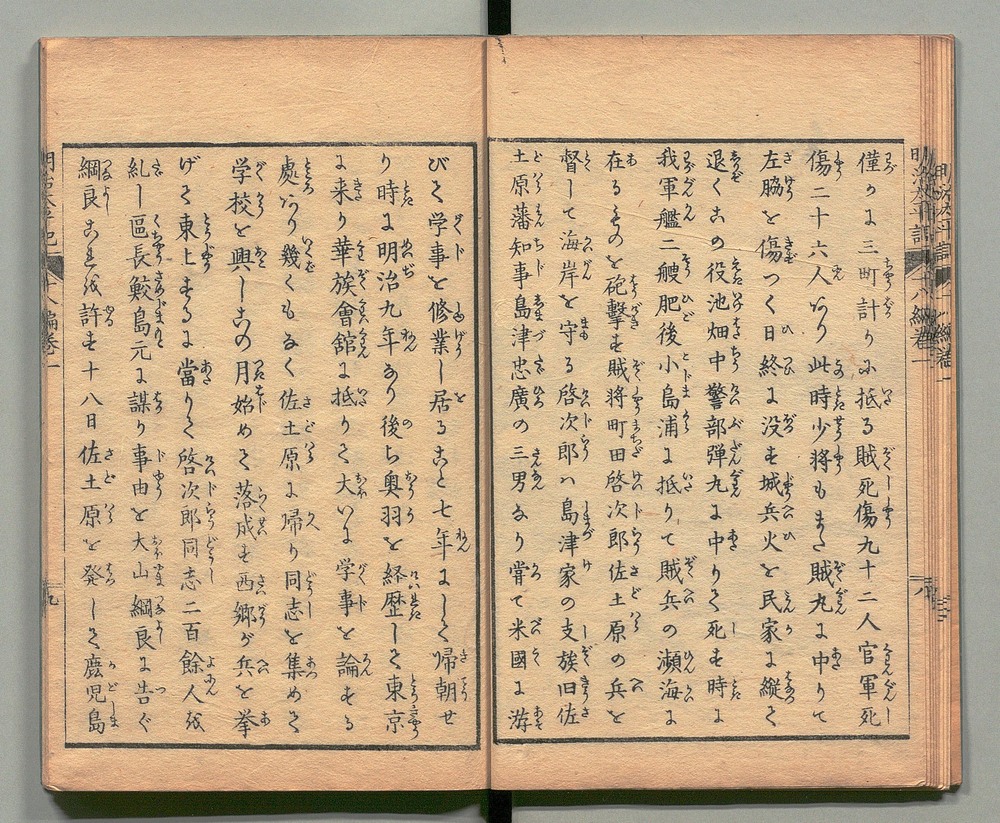 僅かに三町計りに抵る賊死傷九十二人官軍死
傷二十六人なり此時少将もまた賊丸に中りて
左脇を傷つく日終に没す城兵火を民家に縦て
退くこの役池畑中警部弾丸に中りて死す時に
我軍艦二艘肥後小島浦に抵りて賊兵の瀕海に
在るものを砲撃す賊将町田啓次郎佐土原の兵を
督して海岸を守る啓次郎ハ島津家の支族旧佐
土原藩知事島津忠廣の三男なり嘗て米國に游
びて学事を修業し居ること七年にして帰朝せ
り時に明治九年なり後ち奥羽を経歴して東京
に来り華族會舘に抵りて大いに学事を論ずる
處あり幾くもなく佐土原に帰り同志を集めて
学校を興しこの月始めて落成す西郷が兵を挙
げて東上するに當りて啓次郎同志二百餘人を
糺し區長鮫島元に謀り事由を大山綱良に告ぐ
綱良これを許す十八日佐土原を発して鹿児島
明治太平記
十八編巻一
十九